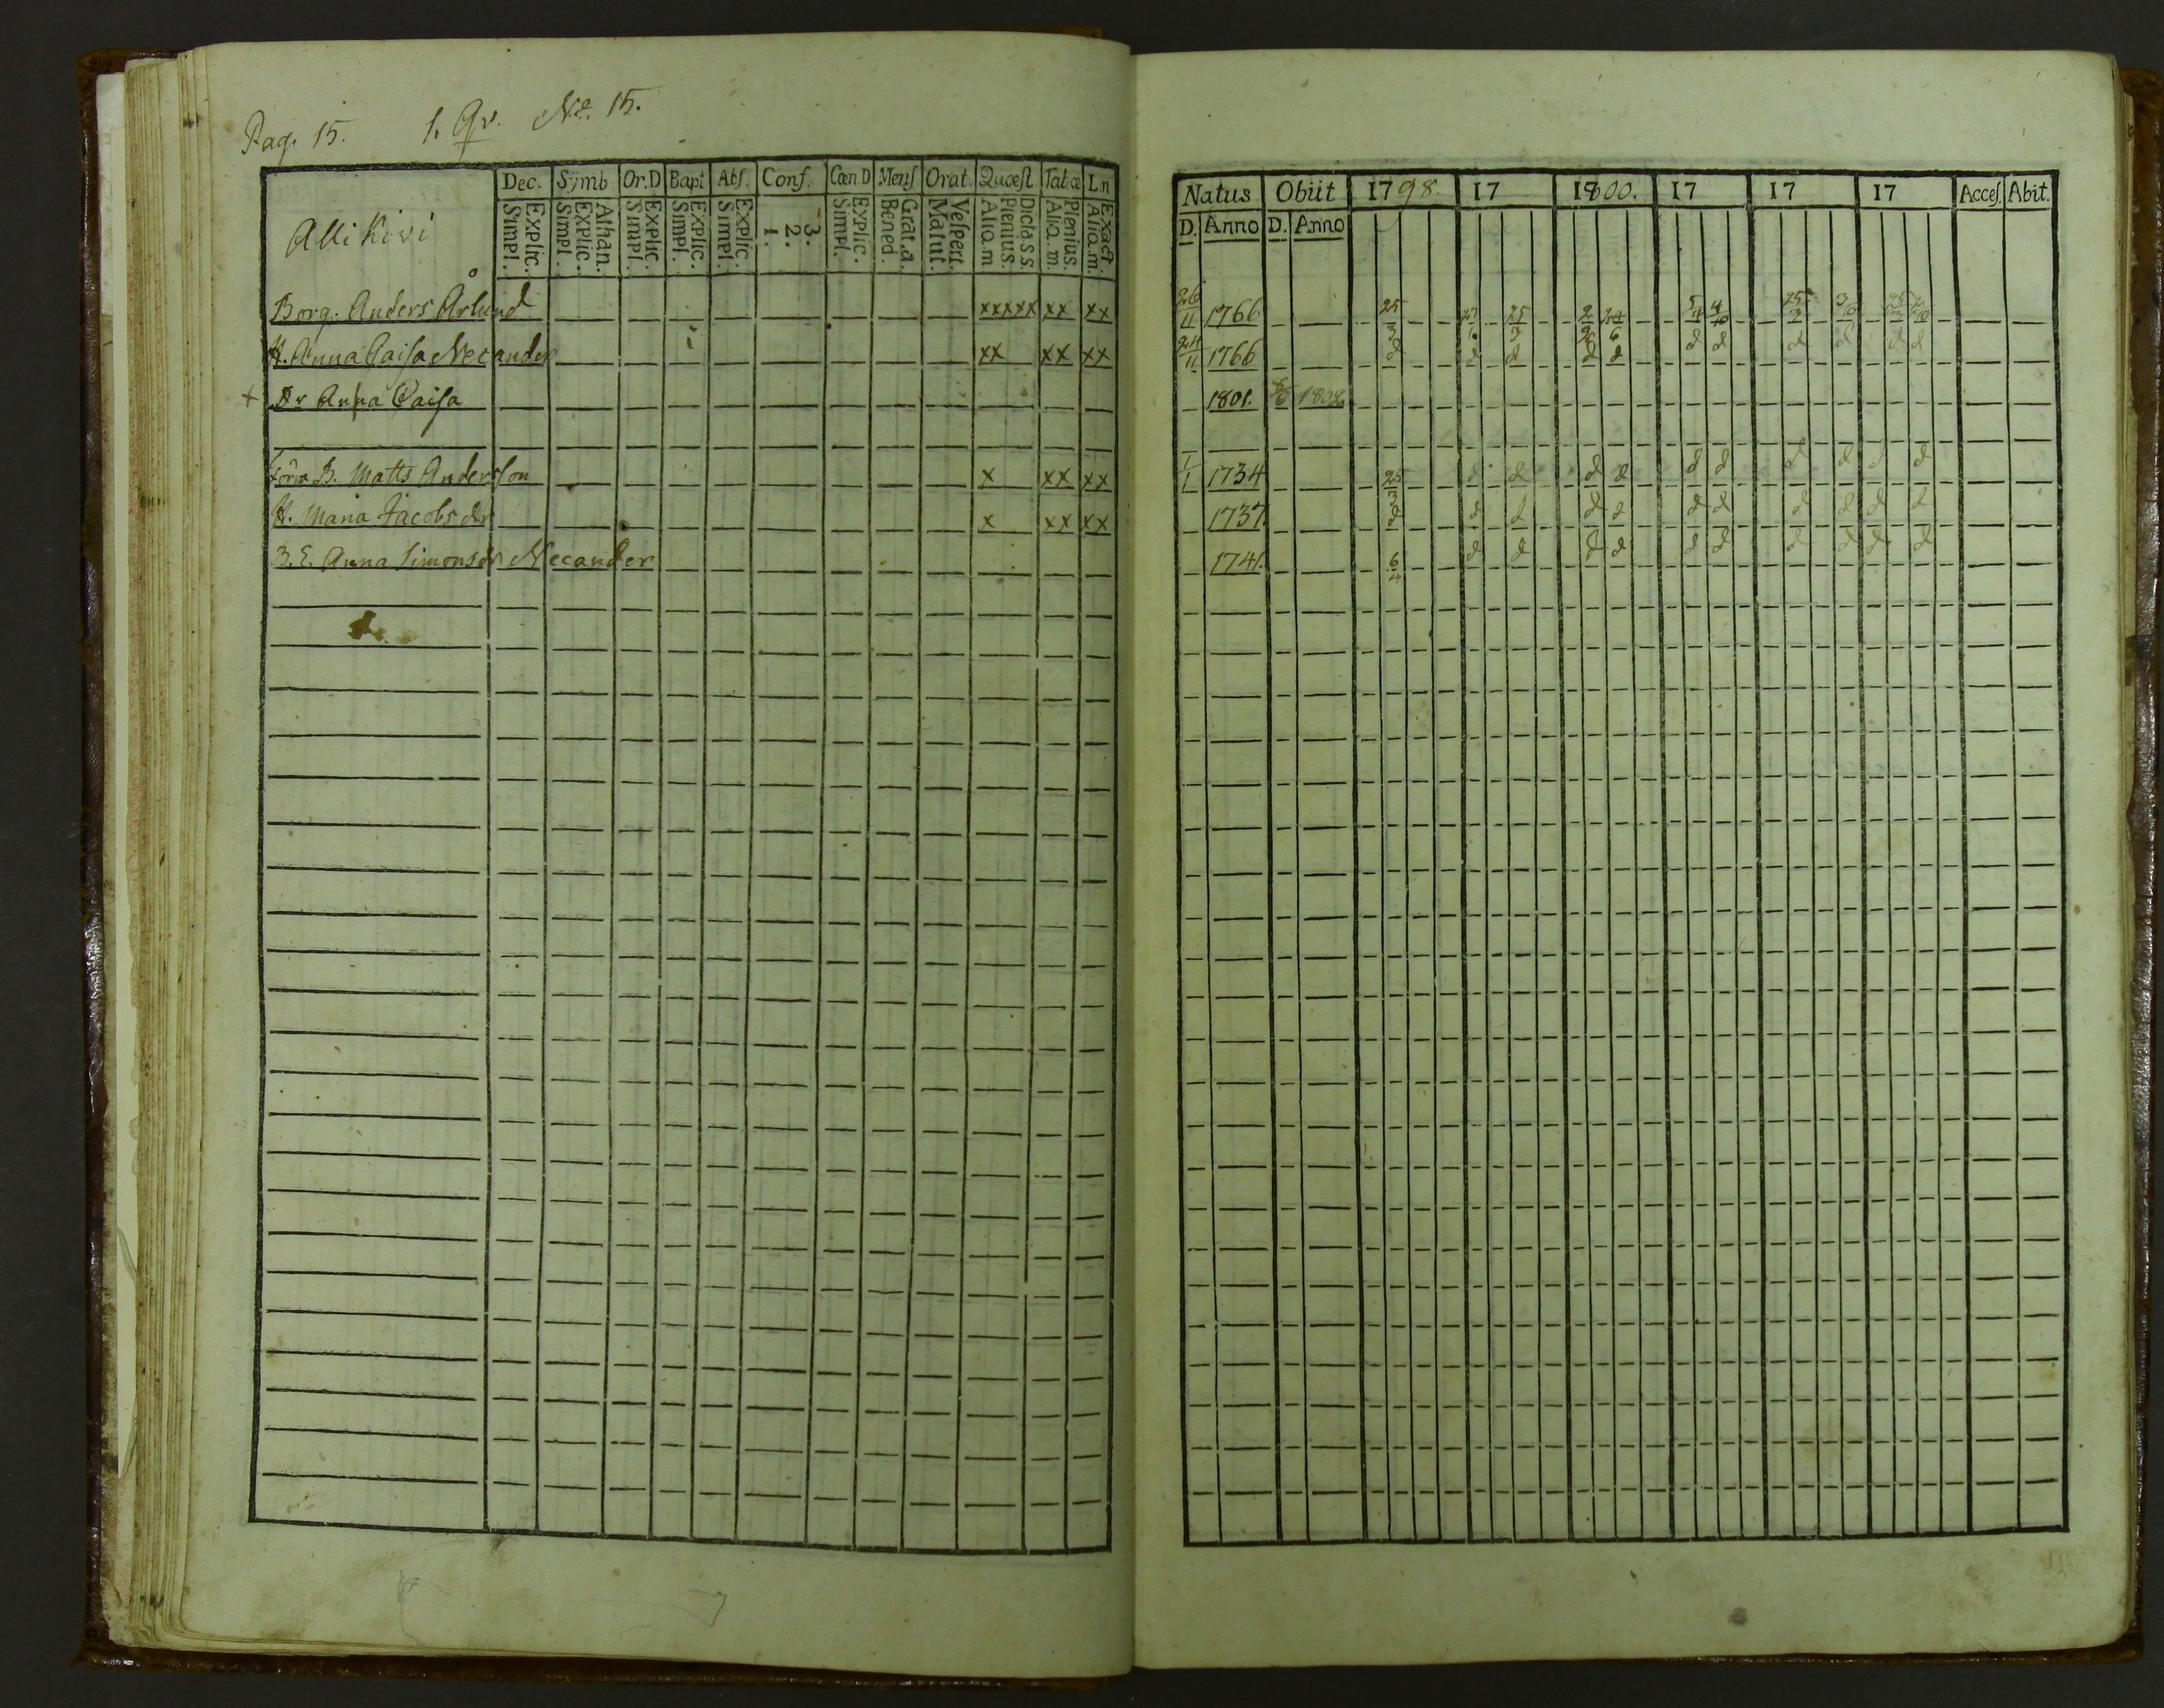 Pag. 15. 1. Qv. No. 15.
Dec. Symb Or.D Bapt Abs. Conf. Cœn.D Mens Orat. Quæst Tabæ Ln
Alli Kivi
Simpl. Explic. Simpl. Explic. Athan. Simpl. Explic. Simpl. Explic. Simpl. Explic. 1. 2. 3. Simpl. Explic. Bened. Grat.a. Matut. Vespert. Aliq.m Plenius. Dicta S S. Aliq.m. Plenius. Aliq.m. Exact.
Borg. Anders Arlund xxxxx xx xx
H. Anna Caisa Necander xx xx xx
+ Dr Anna Caisa
förm B. Matts Andersson x xx xx
H. Maria Jacobs dr x xx xx
B. E. Anna Simonsdr Necander
Natus Obiit 1798. 17 1800. 17 17 17 Acces. Abit.
D. Anno D. Anno
26/11 1766 25/3 25/3 2/ 24/6 5/4 4/10 25/
24/11 1766 d d d d d d d d d d d
1801. 1808
1/1 1734 25/3 d d d d d d d d d d
1737. d d d d d d d d d d d
1741. 6/4 d d d d d d d d d d